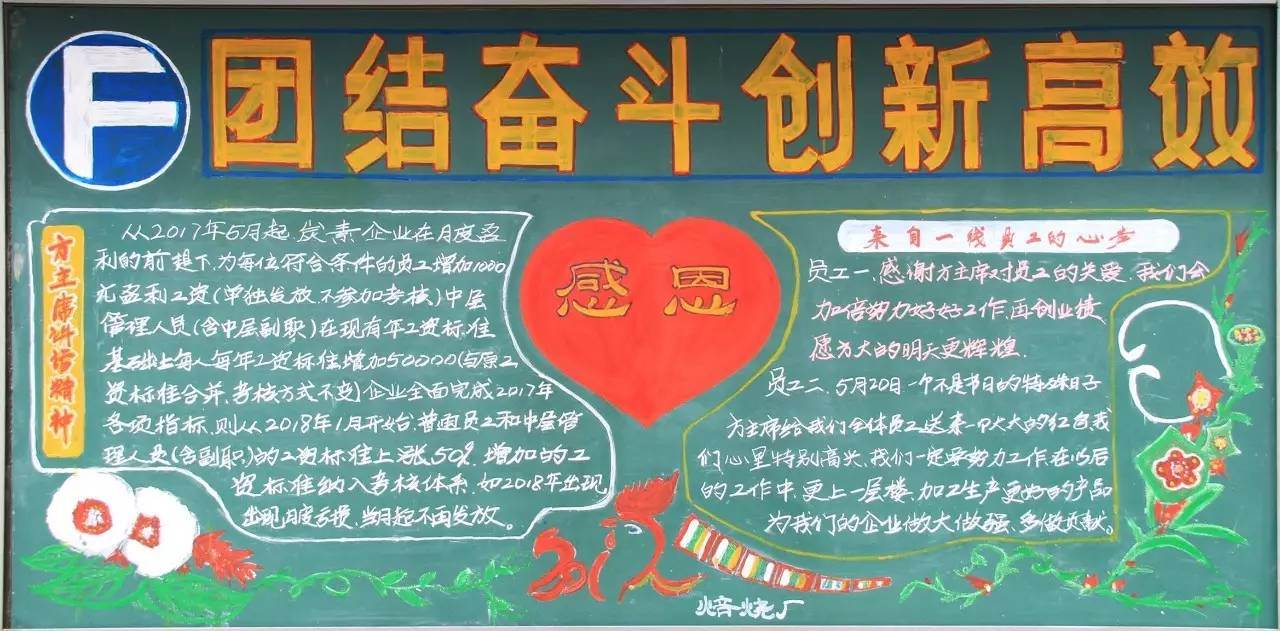 F
团结奋斗创新高效
方主席讲话精神
从2017年5月起,炭素企业在月度盈
利的前提下,为每位符合条件的员工增加1000
元盈利工资(单独发放,不参加考核)中层
管理人员(含中层副职)在现有年工资标准
基础上每人每年工资标准增加50000(与原工
资标准合并,考核方式不变)企业全面完成2017年
各项指标,则从2018年1月开始,普通员工和中层管
理人员(含副职)的工资标准上涨50%,增加的工
资标准纳入考核体系,如2018年出现
出现月度亏损,当月起不再发放。
感恩
来自一线员工的心声
员工一,感谢方主席对员工的关爱,我们会
加倍努力好好工作,再创业绩
愿方大的明天更辉煌.
员工二、5月20日一个不是节日的特殊日子
方主席给我们全体员工送来一个大大的红包我
们心里特别高兴,我们一定要努力工作,在以后
的工作中,更上一层楼,加工生产更好的产品
为我们的企业做大做强,多做贡献。
2017
焙烧厂